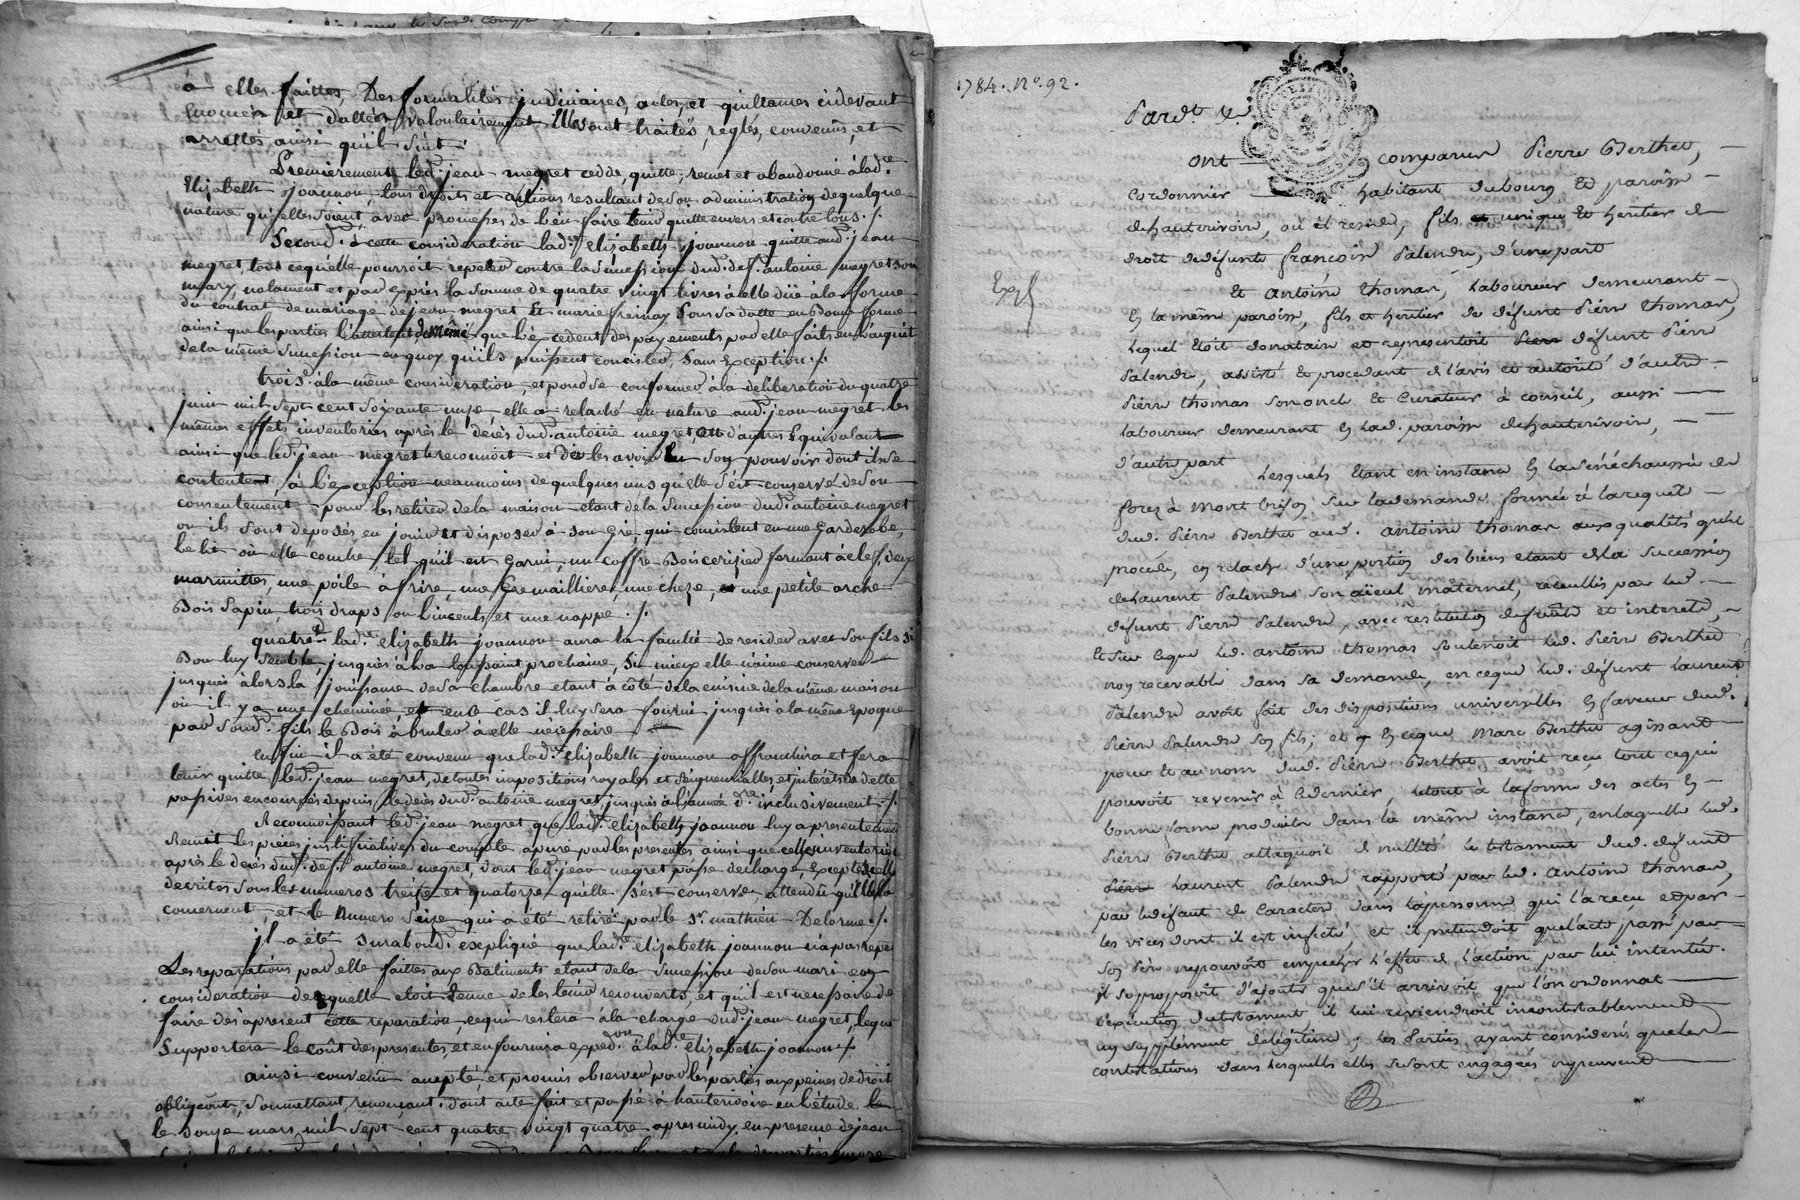 à elles faittes, Des formalités judiciaires, actes, et quittances cidevant
énoncés et dattées volontairement Ils ont traités, reglés, convenus, et
arrettés ainsi qu'il suit.
Premierement led. jean megret cedde, quitte, remet et abandonne à lad.te
Elizabeth joannon, tous droits et actions resultant de son administration de quelque
nature qu'elles soient, avec promesses de bien faire tenir quitte envers et contre tous ./.
Second.t à cette consideration lad.te elizabeth joannon quitte aud. jean
megret, tout cequ'elle pourroit repeter contre la succession dud. def.t antoine megret son
mary, notament et par exprès la somme de quatre vingt livres à elle düe à la forme
du contrat de mariage de jean megret Et marie freinay sous sa datte en bonne forme
ainsi que les parties l'attestent de même que l'excedent des payements par elle faits en l'acquit
de la même succession en quoy qu'ils puissent concister, sans Exception ./.
trois.t à la même consideration, et pour se conformer à la deliberation du quatre
juin mil sept cent soixante onze, elle a relaché en nature aud. jean megret les
mêmes effets inventoriés après le décès dud. antoine megret, ou d'autres Equivalant
ainsi que led. jean megret le reconnoit et de les avoir Eu son pouvoir dont il se
contentent, à l'exception neanmoins de quelques uns qu'elle s'est conservé de son
consentement pour les retirer de la maison etant de la succession dud. antoine megret
ou ils sont deposés, en jouir et disposer à son gré, qui consistent en une Garderobe,
le lit où elle couche, tel qu'il est Garni, un coffre Bois cerizier fermant à clef, deux
marmittes, une poile à frire, une Cremailliere, une cheze, et une petite arche
Bois sapin, trois draps ou linceuls et une nappe ./.
quatre.t lad.te elizabeth joannon aura la faculté de resider avec son fils si
Bon luy semble, jusques à la toussaint prochaine, si mieux elle n'aime conserver
jusques à lors la jouissance de sa chambre etant à côté de la cuisine de la même maison
où il y a une cheminée, et en ce cas il luy sera fourni jusques à la même Epoque
par sond. fils le Bois à bruler à elle nécessaire
Enfin il a été convenu que lad.te Elizabeth joannon affranchira et fera
tenir quitte led. jean megret, de toutes impositions royales et seigneurialles, et intérêts de dette
passives encourues depuis le décès dud. antoine megret, jusques à l'année d.re inclusivement ./.
Reconnoissant led. jean megret que lad.te elizabeth joannon luy a presentement
Remit les pièces justificatives du compte apuré par les presentes ainsi que celles inventoriées
après le décès dud. def.t antoine megret, dont led. jean megret passe decharge, Excepté celles
decrites sous les numeros treize et quatorze qu'elle s'est conservée, attendu qu'elle la
concernent, et le Numero seize qui a été retiré par le S.r mathieu Delorme ./.
jl a été surabond.t expliqué que lad.te elizabeth joannon n'a pas repeté
Les reparations par elle faittes aux Batiments etant de la succession de son mari en
consideration de ce quelle etoit tenue de les tenir recouverts, et qu'il est necessaire de
faire dès apresent cette reparation, ce qui restera à la charge dud. jean megret, lequel
supportera le coût des presentes, et en fournira exped.on à lad.te elizabeth joannon ./.
ainsi convenû accepté, et promis observer par les parties aux peines de droit
obligeants, soumettant, renonçant. dont acte fait et passé à hauterivoire en l'étude
le douze mars, mil sept cent quatre vingt quatre, apres midy, en presence de jean
1784. N°. 92.
Pard.t &.
ont comparus Pierre Berthet,
Cordonnier habitant du bourg et paroisse
de hauterivoire, où il reside, fils unique et heritier de
droit de défunte françoise Palendre, d'une part
Et Antoine Thomas, Laboureur demeurant
En la même paroisse, fils et heritier de défunt Pierre thomas,
Lequel Etoit donataire et representoit défunt Pierre
Palendre, assisté Et procedant de l'avis et autorité d'autre
Pierre thomas son oncle Et Curateur à conseil, aussi
Laboureur demeurant En lad. paroisse de hauterivoire,
d'autre part
Exp.
Lesquels Etant en instance En la Sénéchaussée de
forez à Mont brison sur la demande formée à la requête
dud. Pierre Berthet aud. antoine thomas aux qualités qu'il
procède, en relache d'une portion des biens etant de la succession
de Laurent Palendre son aïeul maternel, recueillis par led.
défunt Pierre Palendre, avec restitution de fruits et interets,
Et sur ceque led. antoine thomas soutenoit led. Pierre Berthet
non recevable dans sa demande, en ceque led. défunt Laurent
Palendre avoit fait des dispositions universelles En faveur dud.
Pierre Palendre son fils; et En ceque Marc Berthet agissant
pour Et au nom dud. Pierre Berthet, avoit recu tout cequi
pouvoit revenir à ce dernier, le tout à la forme des actes En
bonne forme produits dans la même instance, en laquelle led.
Pierre Berthet attaquoit de nullité le testament dud. défunt
Laurent Palendre rapporté par led. antoine thomas,
par le défaut de Caractere dans la personne qui l'a recu et par
les vices dont il est infecté, et il pretendoit que l'acte passé par
son Père ne pouvoit empecher l'effet de l'action par lui intentée.
il se proposoit d'ajouter que s'il arrivoit que l'on ordonnat
l'exécution du testament il lui reviendroit incontestablement
un supplément de légitime; les Parties ayant consideré que les
contestations dans lesquelles elles se sont engagées